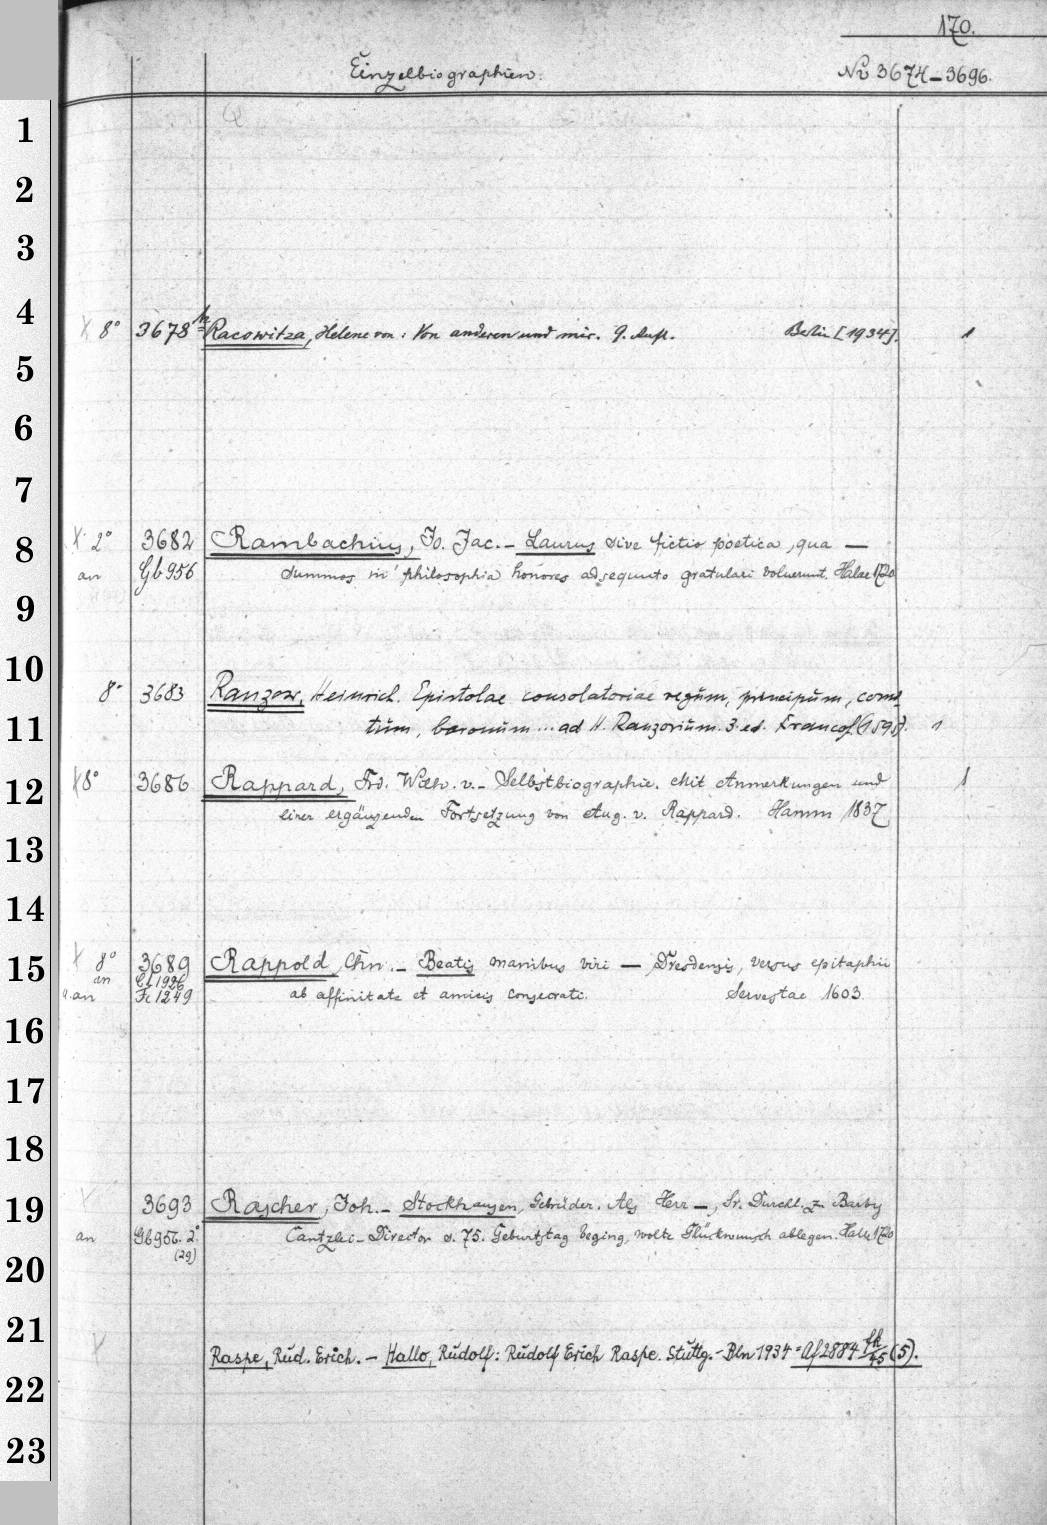 170.
Einzelbiographien.
No 3674-3696.
1
2
3
4
X 8° 3678 k Racowitza, Helene von: Von anderen und mir. 9. Aufl. Berlin [1934]. 1
5
6
7
8
X 2° 3682 Rambachius, Jo. Jac. - Laurus sive fictio poetica, qua —
an Gb 956 summos in philosophia honores adsequuto gratulari voluerunt. Halae 1720
9
10
8° 3683 Ranzow, Heinrich. Epistolae consolatoriae regum, principum, comi-
11
tum, baronum ... ad H. Ranzovium. 3. ed. Francof. (1595). 1
12
X 8° 3686 Rappard, Frd. Wilh. v. - Selbstbiographie. Mit Anmerkungen und 1
einer ergänzenden Fortsetzung von Aug. v. Rappard. Hamm 1837
13
14
15
X 8° 3689 Rappold, Chn. - Beatis manibus viri — Dresdensis, versus epitaphii
an 1926
an Fc 1249 ab affinitate et amicis consecrati. Servestae 1603.
16
17
18
19
3693 Rascher, Joh. - Stockhausen, Gebrüder. Als Herr —, Sr. Durchl. z. Barby
an Gb 956. 2° Cantzlei-Director s. 75. Geburtstag beging, wolte Glückwunsch ablegen. Halle 1720
(29)
20
21
Raspe, Rud. Erich. - Hallo, Rudolf: Rudolf Erich Raspe. Stuttg.-Bln 1934 = Af 2884 (5).
22
23